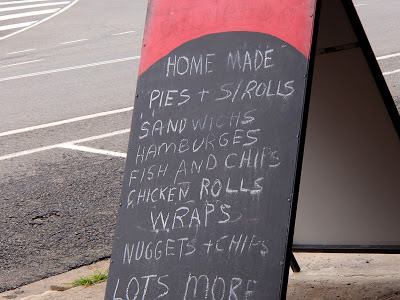 HOME MADE
PIES + S/ROLLS
SANDWICHS
HAMBURGES
FISH AND CHIPS
CHICKEN ROLLS
WRAPS
NUGGETS + CHIPS
LOTS MORE